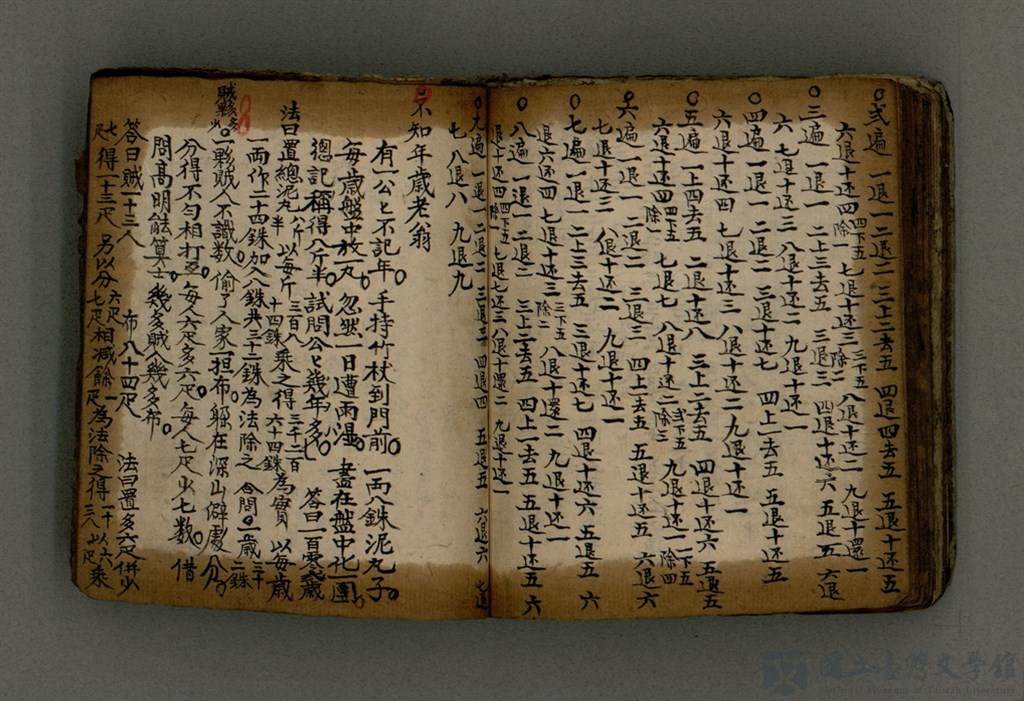 ○弍遍 一退一 二退二 三上二去五 四退四去五 五退十还五
六退十还四 除一 四下五 七退十还三 除二 三下五 八退十还二 九退十還一
○三遍 一退一 二上三去五 三退三 四退十还六 五退五 六退
六 七退十还三 八退十还二 九退十还一
○四遍 一退一 二退二 三退十还七 四上一去五 五退十还五
六退十还四 七退十还三 八退十还二 九退十还一
○五遍 一上四去五 二退十还八 三上二去五 四退十还六 五退五
六退十还四 除一 四下五 七退七 八退十还二 除三 弍下五 九退十还一 除四 一下五
○六遍 一退一 二退二 三退三 四上一去五 五退十还五 六退六
七退十还三 八退十还二 九退十还一
○七遍 一退一 二上三去五 三退十还七 四退十还六 五退五 六
退六还四 七退十还三 除二 三下五 八退十還二 九退十还一
○八遍 一退一 二退二 三上二去五 四上一去五 五退十还五 六
退十还四 除一 四下五 七退七还三 八退十還二 九退十还一
○九遍 一退一 二退二 三退三 四退四 五退五 六退六 七退
七 八退八 九退九
不知年歲老翁
有一公公不記年 手持竹杖到門前 一両八銖泥丸子
每年歲盤中放一丸 忽然一日遭雨湿 盡在盤中化一團
總記稱得八斤半 試問公公幾年多 答曰一百零二歲
法曰置總泥丸八斤半 以每斤三百八十四銖乘之得三千二百六十四銖為實 以每歲
一両作二十四銖加入八銖共三十二銖為法除之 合問 一歲三十二銖
賊夥多少 一夥賊人不識数 偷了人家一担布 躱在深山僻處分
分得不勻相打歪 每人六疋多六疋 每人七疋少七数 借
問高明能算士 幾多賊人幾多布
答曰賊一十三人 布八十四疋 法曰置多六疋併少
七疋得一十三疋 另以分六疋七疋相减餘一疋為法除之得一十三人 以六疋乘